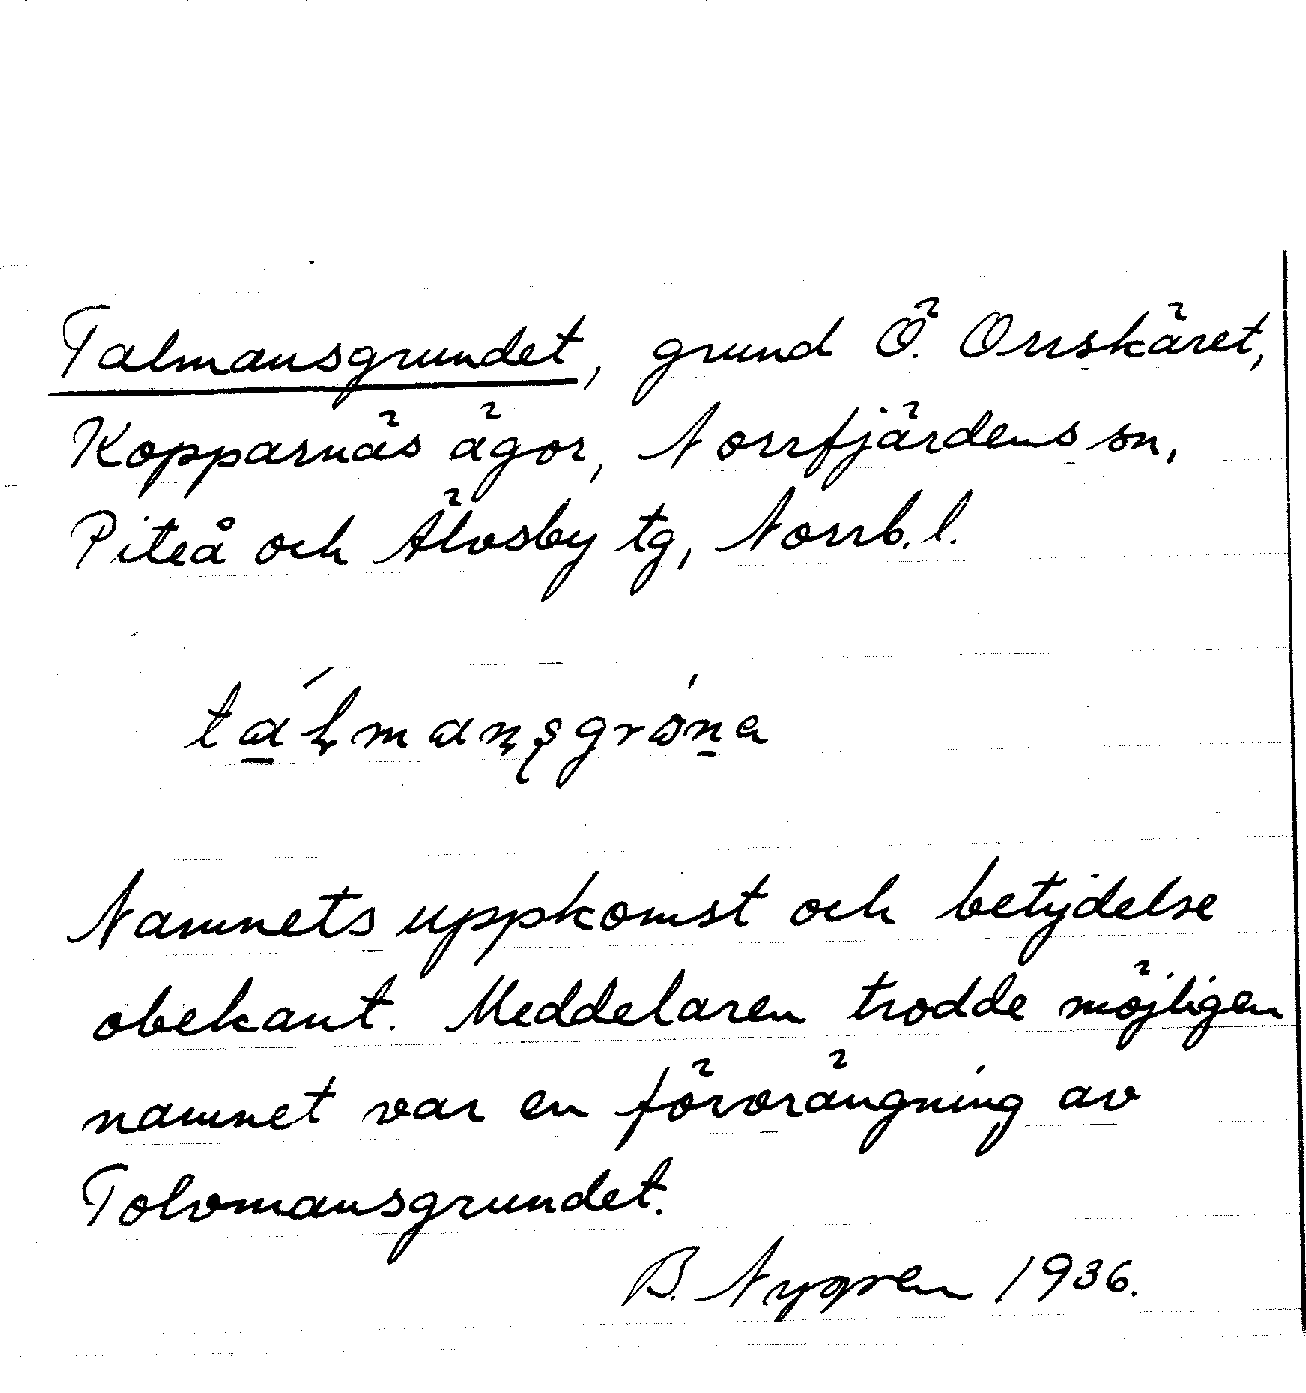 Talmansgrundet, grund Ö. Orrskäret,
Kopparnäs ägor, Norrfjärdens sn,
Piteå och Älvsby tg, Norrb. l.
Namnets uppkomst och betydelse
obekant. Meddelaren trodde möjligen
namnet var en förvrängning av
Tolvmansgrundet.
B. Nygren 1936.